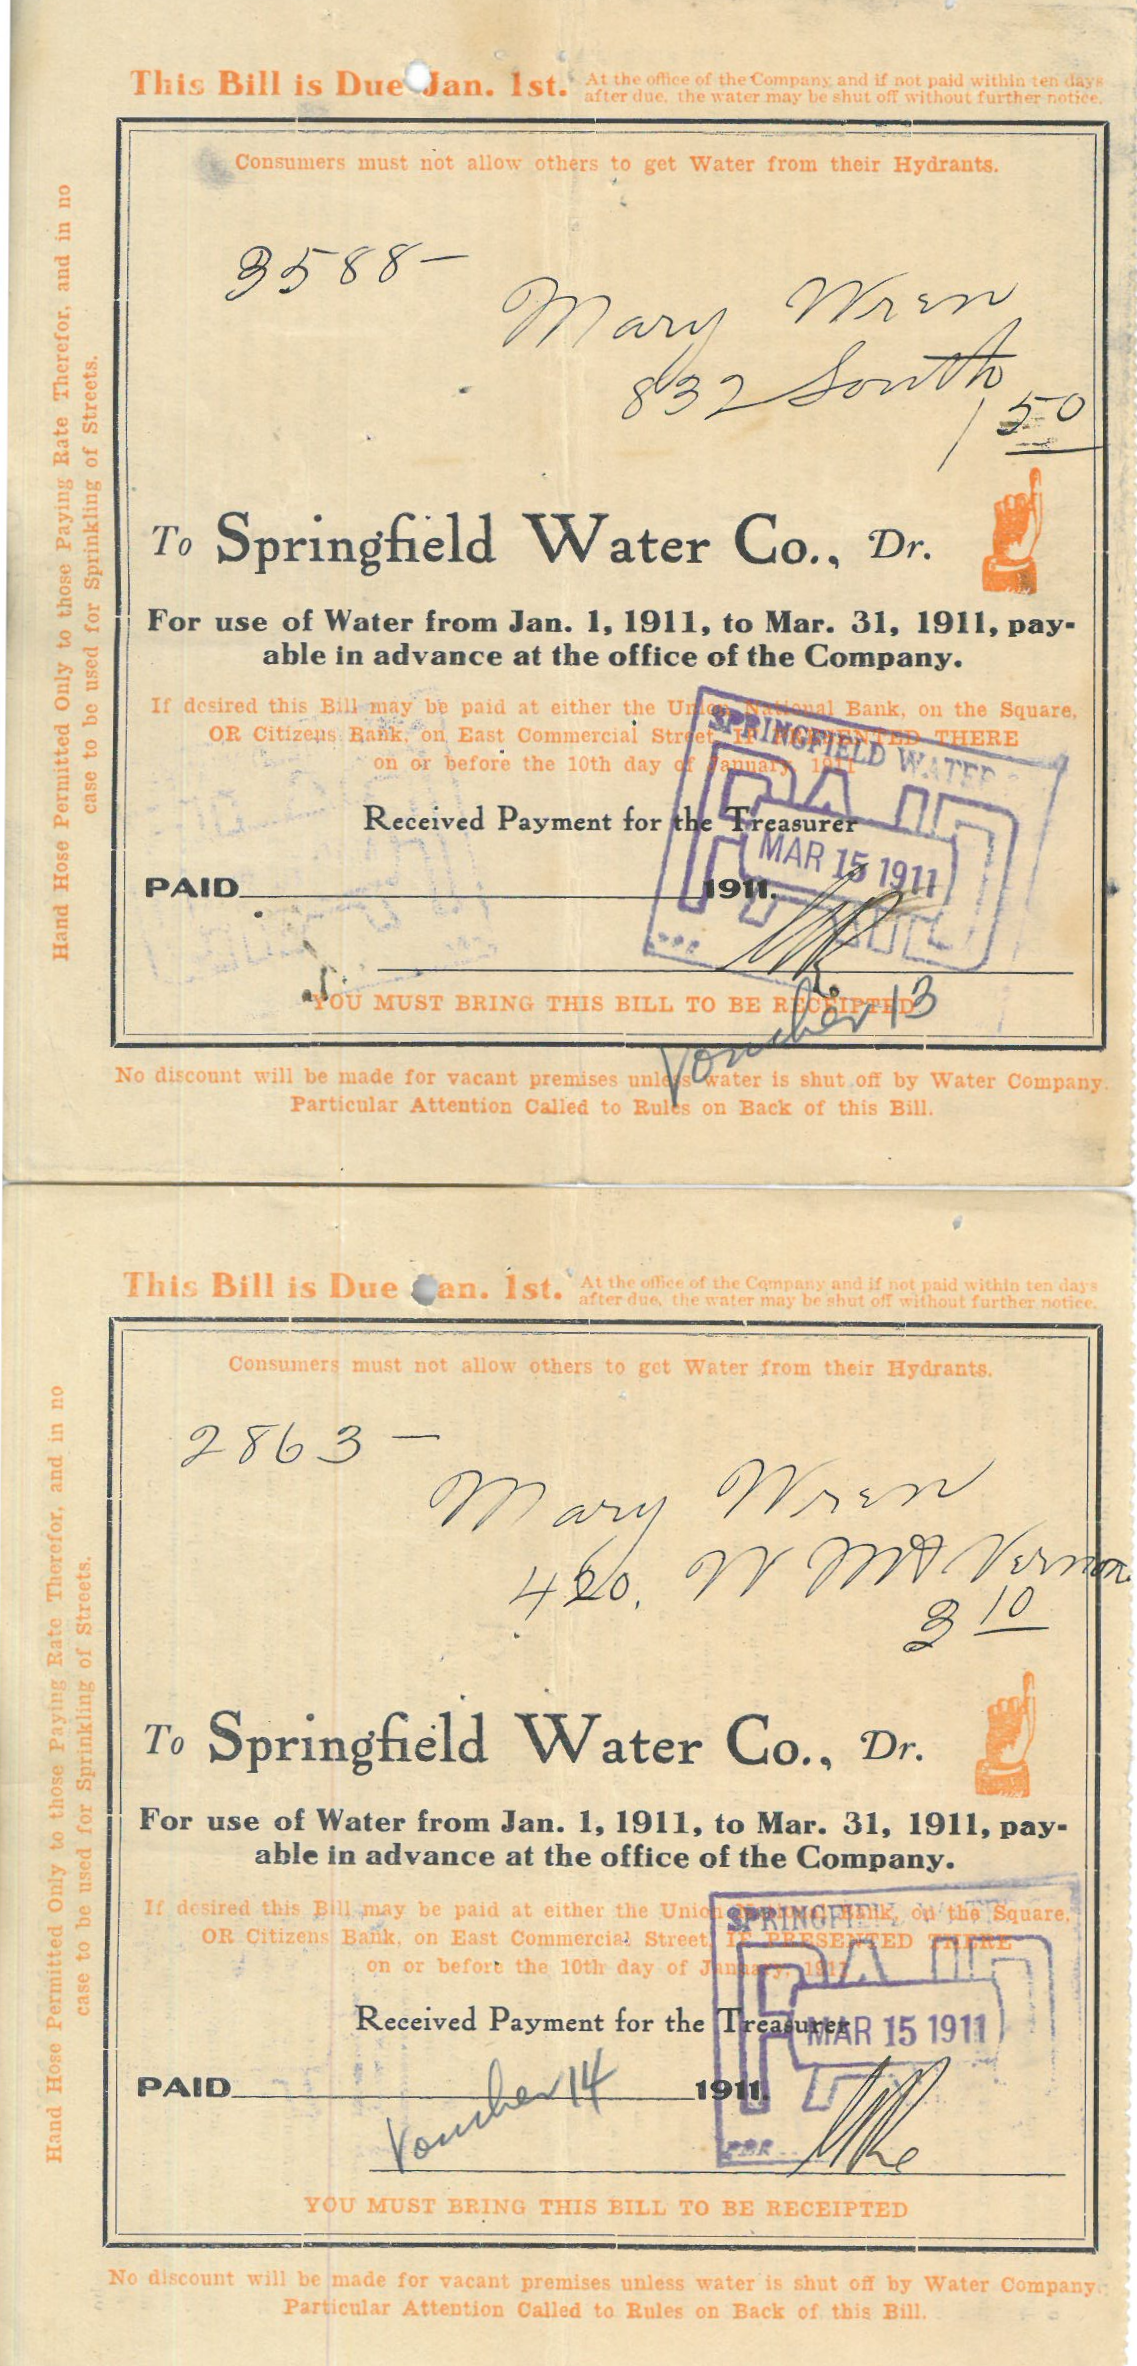 This Bill is Due Jan. 1st. At the office of the Company and if not paid within ten days
after due, the water may be shut off without further notice.
Consumers must not allow others to get Water from their Hydrants.
Hand Hose Permitted Only to those Paying Rate Therefor, and in no
case to be used for Sprinkling of Streets.
3588-
Mary Wren
832 South
1 50
To Springfield Water Co., Dr.
For use of Water from Jan. 1, 1911, to Mar. 31, 1911, pay-
able in advance at the office of the Company.
If desired this Bill may be paid at either the Union National Bank, on the Square,
OR Citizens Bank, on East Commercial Street, IF PRESENTED THERE
on or before the 10th day of January, 1911
SPRINGFIELD WATER
PAID
MAR 15 1911
Received Payment for the Treasurer
PAID 1911.
YOU MUST BRING THIS BILL TO BE RECEIPTED
Voucher 13
No discount will be made for vacant premises unless water is shut off by Water Company.
Particular Attention Called to Rules on Back of this Bill.
This Bill is Due Jan. 1st. At the office of the Company and if not paid within ten days
after due, the water may be shut off without further notice.
Consumers must not allow others to get Water from their Hydrants.
Hand Hose Permitted Only to those Paying Rate Therefor, and in no
case to be used for Sprinkling of Streets.
2863-
Mary Wren
W Mt Vernon
3 10
To Springfield Water Co., Dr.
For use of Water from Jan. 1, 1911, to Mar. 31, 1911, pay-
able in advance at the office of the Company.
If desired this Bill may be paid at either the Union National Bank, on the Square,
OR Citizens Bank, on East Commercial Street, IF PRESENTED THERE
on or before the 10th day of January, 1911
SPRINGFIELD
PAID
MAR 15 1911
Received Payment for the Treasurer
PAID 1911.
Voucher 14
YOU MUST BRING THIS BILL TO BE RECEIPTED
No discount will be made for vacant premises unless water is shut off by Water Company.
Particular Attention Called to Rules on Back of this Bill.